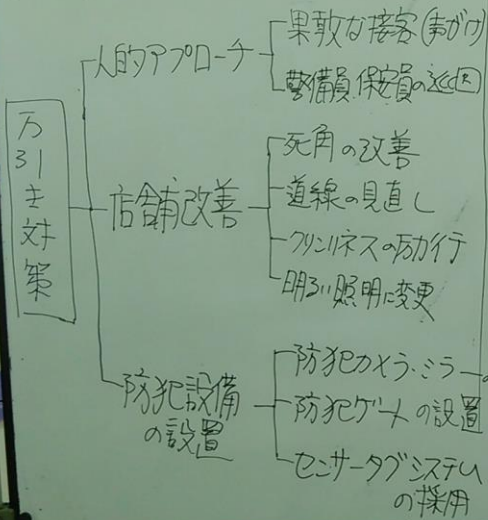 万引き対策
人的アプローチ
果敢な接客(声がけ)
警備員.保安員の巡回
店舗改善
死角の改善
道線の見直し
クリンリネスの励行
明るい照明に変更
防犯設備
の設置
防犯カメラ・ミラー
防犯ゲートの設置
センサータグシステム
の採用